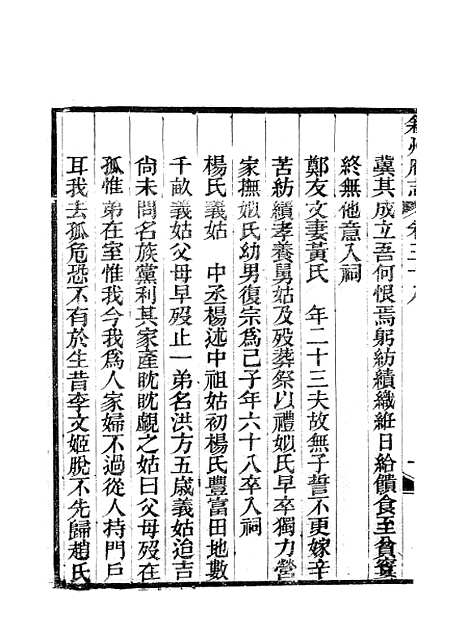 叙州府志 卷三十八
冀其成立吾何恨焉躬紡績織絍日給饋食至貧窶
終無他意入祠
鄭友文妻黃氏 年二十三夫故無子誓不更嫁辛
苦紡績孝養舅姑及殁葬祭以禮娰氏早卒獨力營
家撫娰氏幼男復宗爲己子年六十八卒入祠
楊氏義姑 中丞楊述中祖姑初楊氏豐富田地數
千畝義姑父母早殁止一弟名洪方五歲義姑迨吉
尙未問名族黨利其家產眈眈覷之姑曰父母殁在
孤惟弟在室惟我今我爲人家婦不過從人持門戶
耳我去孤危恐不有於生昔李文姬脫不先歸趙氏